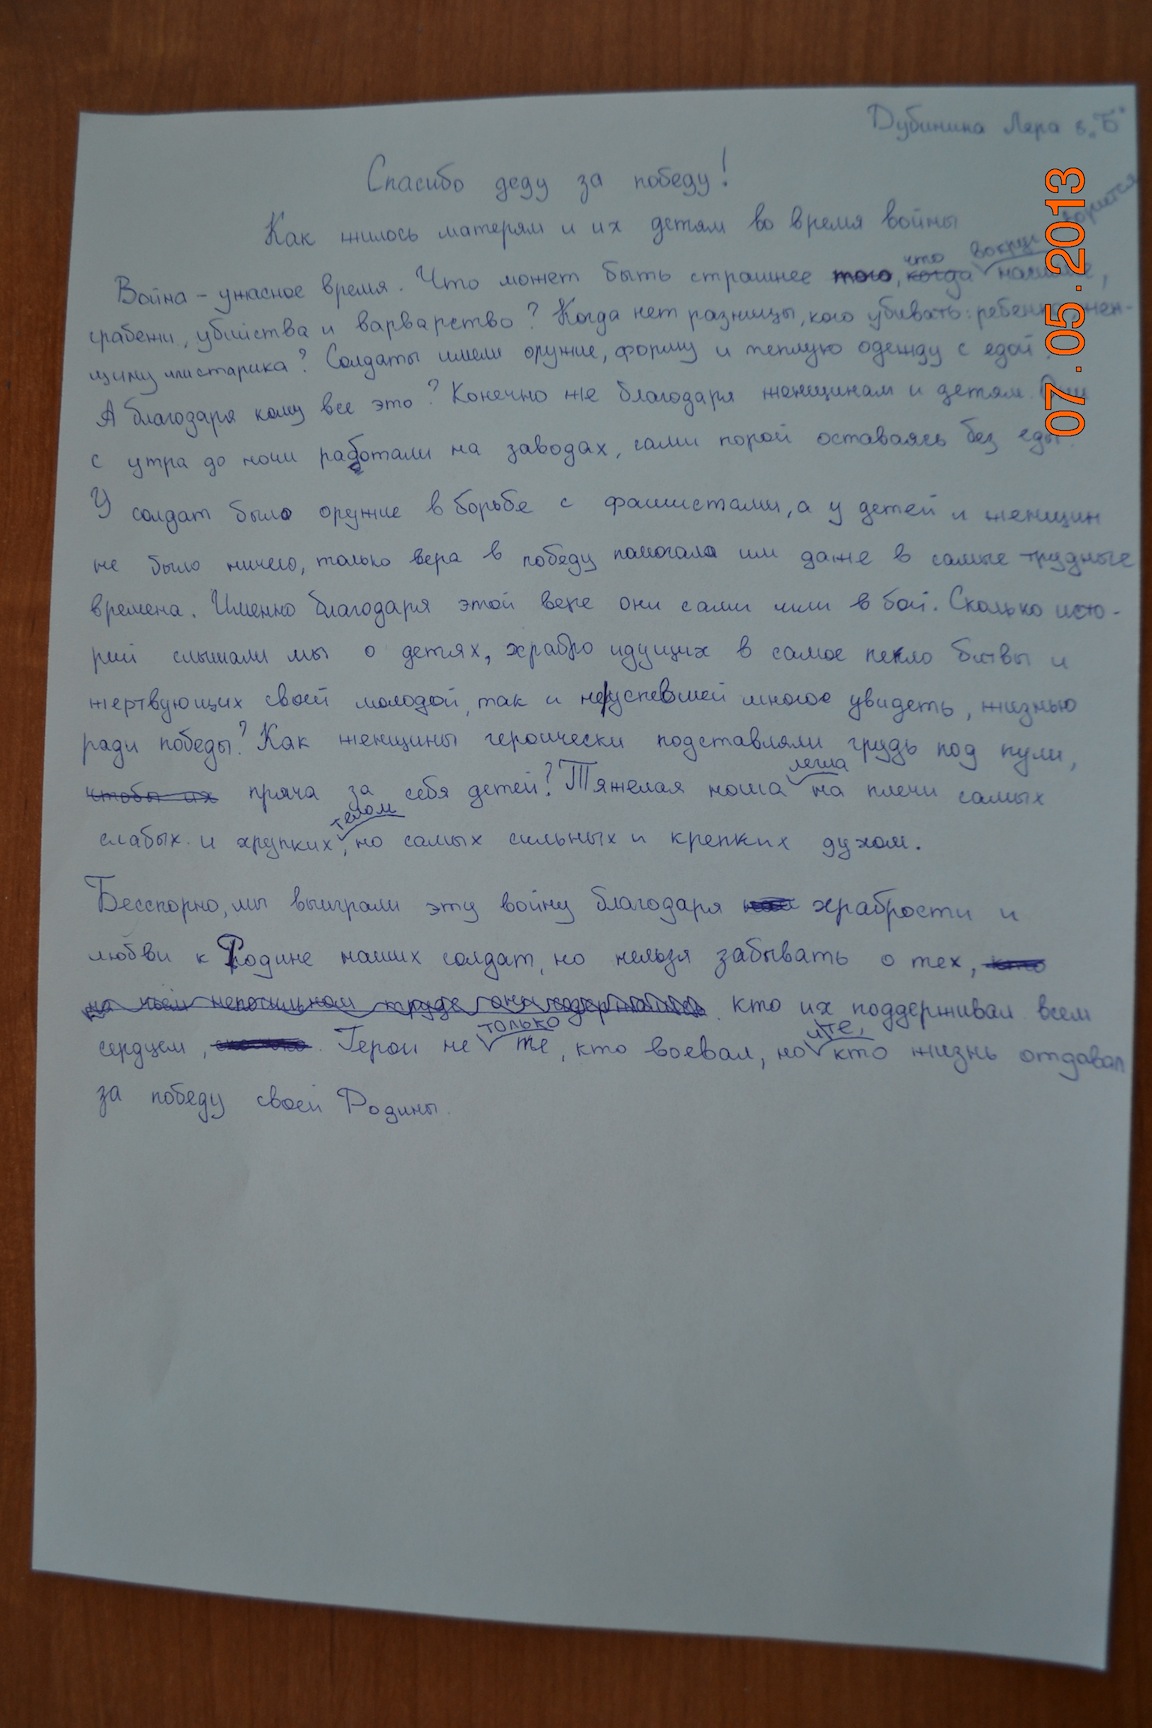 Дубинина Лера 8 „Б"
Спасибо деду за победу!
Как жилось матерям и их детям во время войны
Война – ужасное время. Что может быть страшнее того, что вокруг творится насилие,
грабежи, убийства и варварство? Когда нет разницы, кого убивать: ребенка, жен-
щину или старика? Солдаты имели оружие, форму и теплую одежду с едой.
А благодаря кому все это? Конечно же благодаря женщинам и детям. Они
с утра до ночи работали на заводах, сами порой оставаясь без еды.
У солдат было оружие в борьбе с фашистами, а у детей и женщин
не было ничего, только вера в победу помогала им даже в самые трудные
времена. Именно благодаря этой вере они сами шли в бой. Сколько исто-
рий слышали мы о детях, храбро идущих в самое пекло битвы и
жертвующих своей молодой, так и не успевшей многое увидеть, жизнью
ради победы? Как женщины героически подставляли грудь под пули,
чтобы их пряча за себя детей? Тяжелая ноша легла на плечи самых
слабых и хрупких телом, но самых сильных и крепких духом.
Бесспорно, мы выиграли эту войну благодаря храбрости и
любви к Родине наших солдат, но нельзя забывать о тех,
кто их поддерживал всем
сердцем, Герои не только те, кто воевал, но и те, кто жизнь отдавал
за победу своей Родины.
07.05.2013